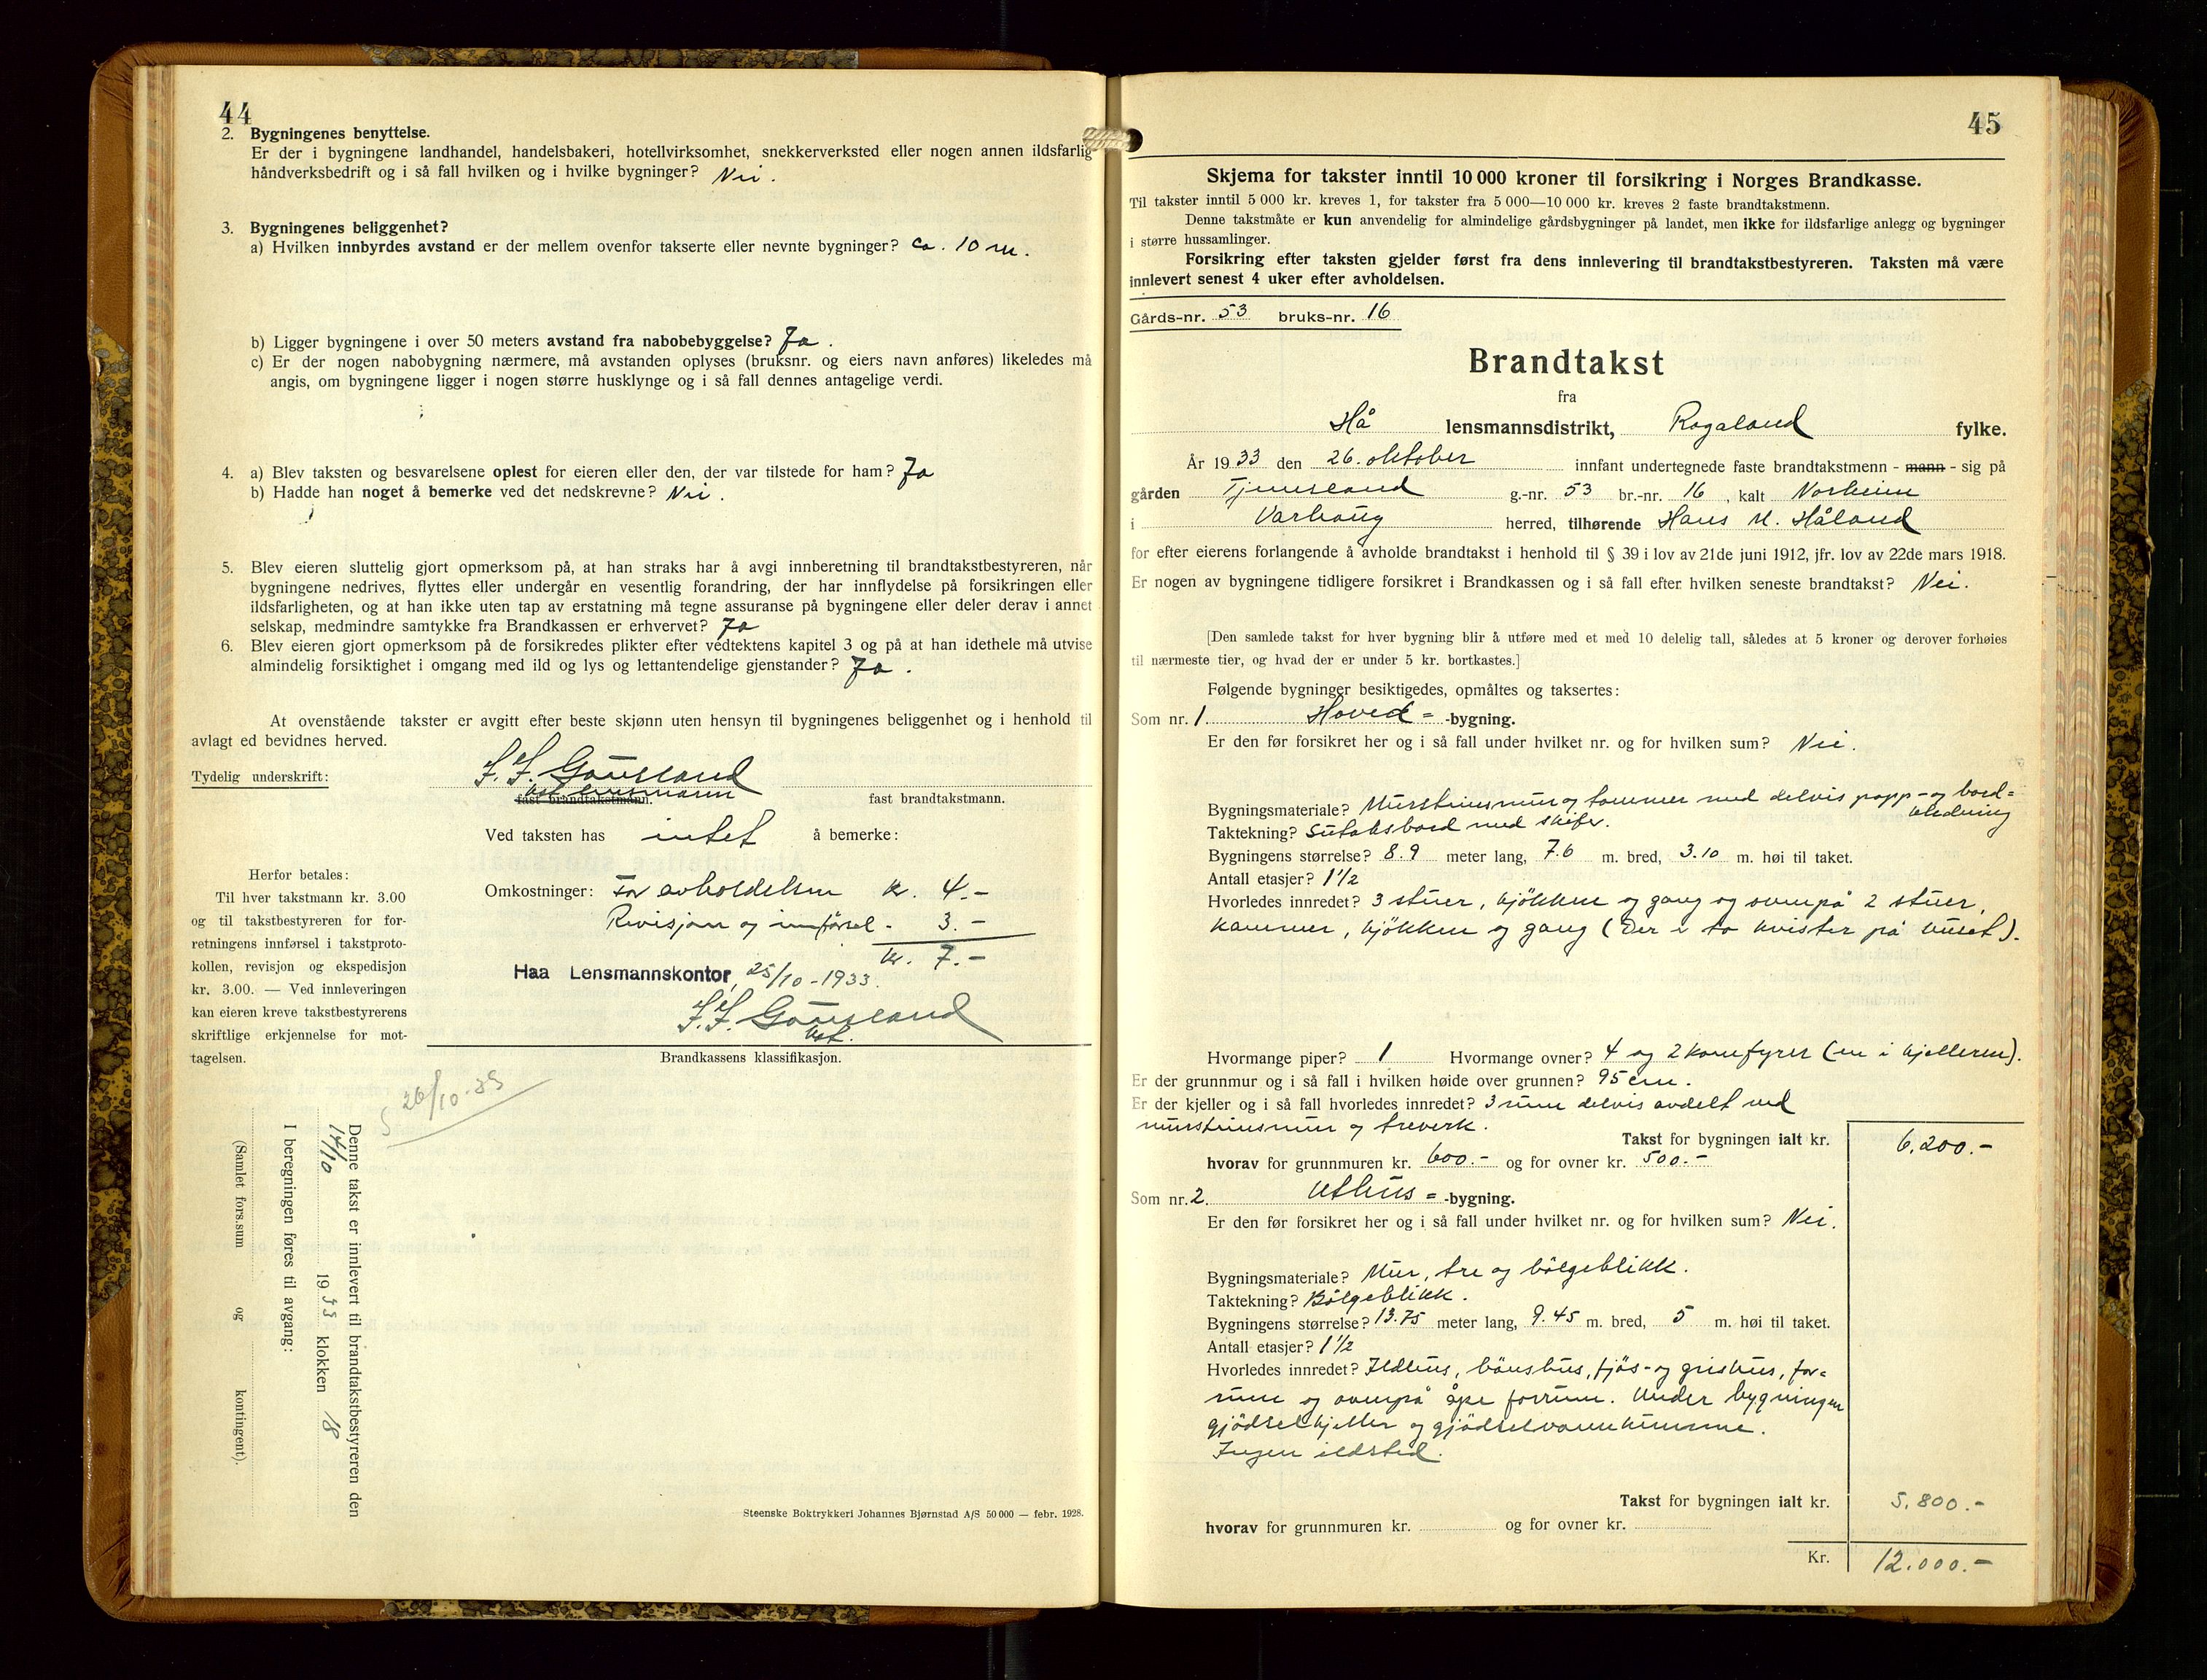 44
2. Bygningenes benyttelse.
Er der i bygningene landhandel, handelsbakeri, hotellvirksomhet, snekkerverksted eller nogen annen ildsfarlig
håndverksbedrift og i så fall hvilken og i hvilke bygninger? Nei.
3. Bygningenes beliggenhet?
a) Hvilken innbyrdes avstand er der mellem ovenfor takserte eller nevnte bygninger? ca. 10 m.
b) Ligger bygningene i over 50 meters avstand fra nabobebyggelse? Ja.
c) Er der nogen nabobygning nærmere, må avstanden oplyses (bruksnr. og eiers navn anføres) likeledes må
angis, om bygningene ligger i nogen større husklynge og i så fall dennes antagelige verdi.
4. a) Blev taksten og besvarelsene oplest for eieren eller den, der var tilstede for ham? Ja
b) Hadde han noget å bemerke ved det nedskrevne? Nei.
5. Blev eieren sluttelig gjort opmerksom på, at han straks har å avgi innberetning til brandtakstbestyreren, når
bygningene nedrives, flyttes eller undergår en vesentlig forandring, der har innflydelse på forsikringen eller
ildsfarligheten, og at han ikke uten tap av erstatning må tegne assuranse på bygningene eller deler derav i annet
selskap, medmindre samtykke fra Brandkassen er erhvervet? Ja
6. Blev eieren gjort opmerksom på de forsikredes plikter efter vedtektens kapitel 3 og på at han idethele må utvise
almindelig forsiktighet i omgang med ild og lys og lettantendelige gjenstander? Ja.
At ovenstående takster er avgitt efter beste skjønn uten hensyn til bygningenes beliggenhet og i henhold til
avlagt ed bevidnes herved.
Tydelig underskrift: Gausland
fast brandtakstmann. lensmann fast brandtakstmann.
Ved taksten has intet å bemerke:
Herfor betales:
Til hver takstmann kr. 3.00
og til takstbestyreren for for-
retningens innførsel i takstproto-
kollen, revisjon og ekspedisjon
kr. 3.00. — Ved innleveringen
kan eieren kreve takstbestyrerens
skriftlige erkjennelse for mot-
tagelsen.
Omkostninger: For avholdelsen kr. 4.-
Revisjon og innførsel - 3.-
kr. 7.-
Haa Lensmannskontor, 25/10-1933.
Gausland
Brandkassens klassifikasjon.
26/10-33
Denne takst er innlevert til brandtakstbestyreren den
14/10 1933 klokken 18
I beregningen føres til avgang:
(Samlet fors.sum og kontingent).
Steenske Boktrykkeri Johannes Bjørnstad A/S 50 000 — febr. 1928.
45
Skjema for takster inntil 10 000 kroner til forsikring i Norges Brandkasse.
Til takster inntil 5 000 kr. kreves 1, for takster fra 5 000—10 000 kr. kreves 2 faste brandtakstmenn.
Denne takstmåte er kun anvendelig for almindelige gårdsbygninger på landet, men ikke for ildsfarlige anlegg og bygninger
i større hussamlinger.
Forsikring efter taksten gjelder først fra dens innlevering til brandtakstbestyreren. Taksten må være
innlevert senest 4 uker efter avholdelsen.
Gårds-nr. 53 bruks-nr. 16
Brandtakst
fra
Hå lensmannsdistrikt, Rogaland fylke.
År 1933 den 26. oktober innfant undertegnede faste brandtakstmenn - mann - sig på
gården Tjemsland g.-nr. 53 br.-nr. 16, kalt Norheim
i Varhaug herred, tilhørende Hans M. Håland
for efter eierens forlangende å avholde brandtakst i henhold til § 39 i lov av 21de juni 1912, jfr. lov av 22de mars 1918.
Er nogen av bygningene tidligere forsikret i Brandkassen og i så fall efter hvilken seneste brandtakst? Nei.
[Den samlede takst for hver bygning blir å utføre med et med 10 delelig tall, således at 5 kroner og derover forhøies
til nærmeste tier, og hvad der er under 5 kr. bortkastes.]
Følgende bygninger besiktigedes, opmåltes og taksertes:
Som nr. 1. Hoved= -bygning.
Er den før forsikret her og i så fall under hvilket nr. og for hvilken sum? Nei.
Bygningsmateriale? Murstensmur og tømmer med delvis papp- og bord=
kledning
Taktekning? Sutaksbord med skifer.
Bygningens størrelse? 8.9 meter lang, 7.6 m. bred, 3.10 m. høi til taket.
Antall etasjer? 1½
Hvorledes innredet? 3 stuer, kjøkken og gang og ovenpå 2 stuer,
kammer, kjøkken og gang (Der er to kvister på huset).
Hvormange piper? 1 Hvormange ovner? 4 og 2 komfyrer (en i kjelleren).
Er der grunnmur og i så fall i hvilken høide over grunnen? 95 cm.
Er der kjeller og i så fall hvorledes innredet? 3 rum delvis avdelt med
murstensmur og treverk.
Takst for bygningen ialt kr. 6.200.-
hvorav for grunnmuren kr. 600.- og for ovner kr. 500.-
Som nr. 2. Uthus= -bygning.
Er den før forsikret her og i så fall under hvilket nr. og for hvilken sum? Nei.
Bygningsmateriale? Mur, tre og bølgeblikk.
Taktekning? Bølgeblikk.
Bygningens størrelse? 13.75 meter lang, 9.45 m. bred, 5 m. høi til taket.
Antall etasjer? 1½
Hvorledes innredet? Ildhus, hønshus, fjøs- og grishus, for=
rum og ovenpå åpe forrum. Under bygningen
gjødselkjeller og gjødselvannkumme.
Ingen ildsted.
Takst for bygningen ialt kr. 5.800.-
hvorav for grunnmuren kr. og for ovner kr.
Kr. 12.000.-